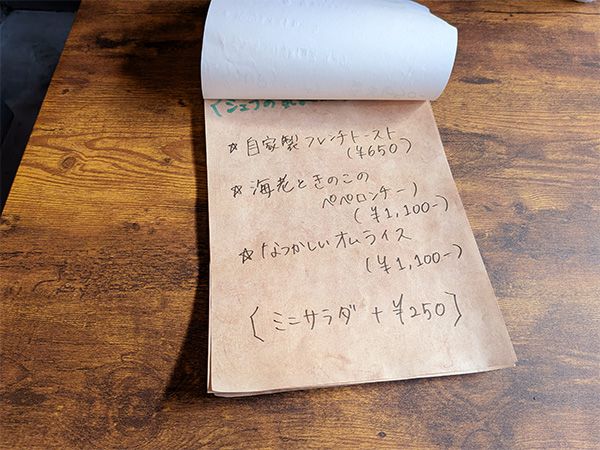 〈シェフの気
☆ 自家製フレンチトースト
(¥650)
☆ 海老ときのこの
ペペロンチーノ
(¥1,100-)
☆ なつかしいオムライス
(¥1,100-)
[ミニサラダ +¥250]